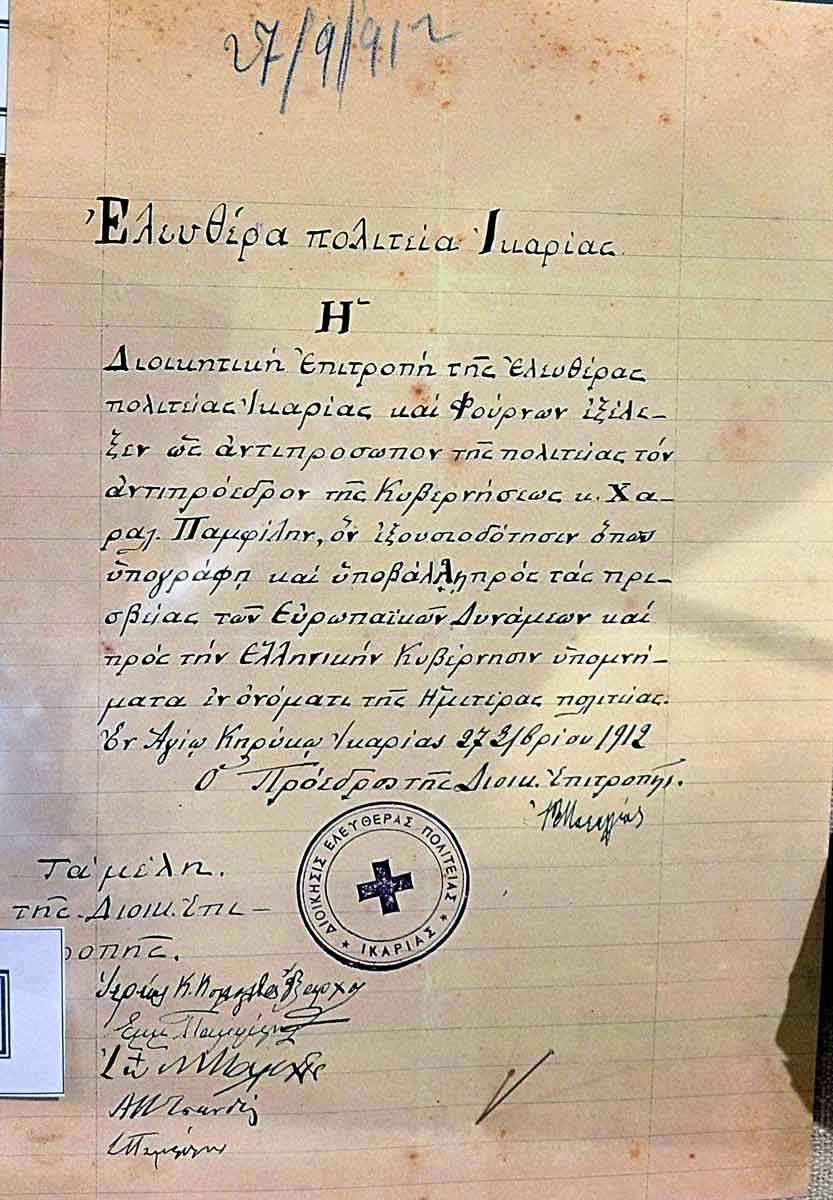 27/9/912
Ἐλευθέρα πολιτεία Ἰκαρίας
Ἡ
Διοικητική Ἐπιτροπή τῆς Ἐλευθέρας
πολιτείας Ἰκαρίας καί Φούρνων ἐξέλε-
ξεν ὡς ἀντιπρόσωπον τῆς πολιτείας τόν
ἀντιπρόεδρον τῆς Κυβερνήσεως κ. Χα-
ραλ. Παμφίλην, ὅν ἐξουσιοδότησεν ὅπως
ὑπογράφῃ καί ὑποβάλλῃ πρός τάς πρε-
σβείας τῶν Εὐρωπαϊκῶν Δυνάμεων καί
πρός τήν Ἑλληνικήν Κυβέρνησιν ὑπομνή-
ματα ἐν ὀνόματι τῆς Ἡμετέρας πολιτείας.
Ἐν Ἁγίῳ Κηρύκῳ Ἰκαρίας 27 7/βρίου 1912
Ὁ Πρόεδρος τῆς Διοικ. Ἐπιτροπῆς.
ΔΙΟΙΚΗΣΙΣ ΕΛΕΥΘΕΡΑΣ ΠΟΛΙΤΕΙΑΣ
ΙΚΑΡΙΑΣ
Τά μέλη
τῆς Διοικ. Ἐπι-
ροπῆς.